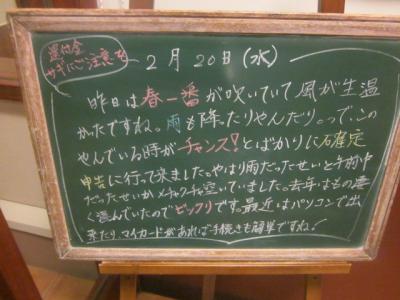 還付金
サギにご注意を
2月20日(水)
昨日は春一番が吹いていて風が生温
かったですね。雨も降ったりやんだり。っで、この
やんでいる時がチャンス!とばかりに確定
申告に行って来ました。やはり雨だったせいと午前中
だったせいかメチャクチャ空いていました。去年はもの凄
く混んでいたのでビックリです。最近はパソコンで出
来たり、マイカードがあれば手続きも簡単ですね!